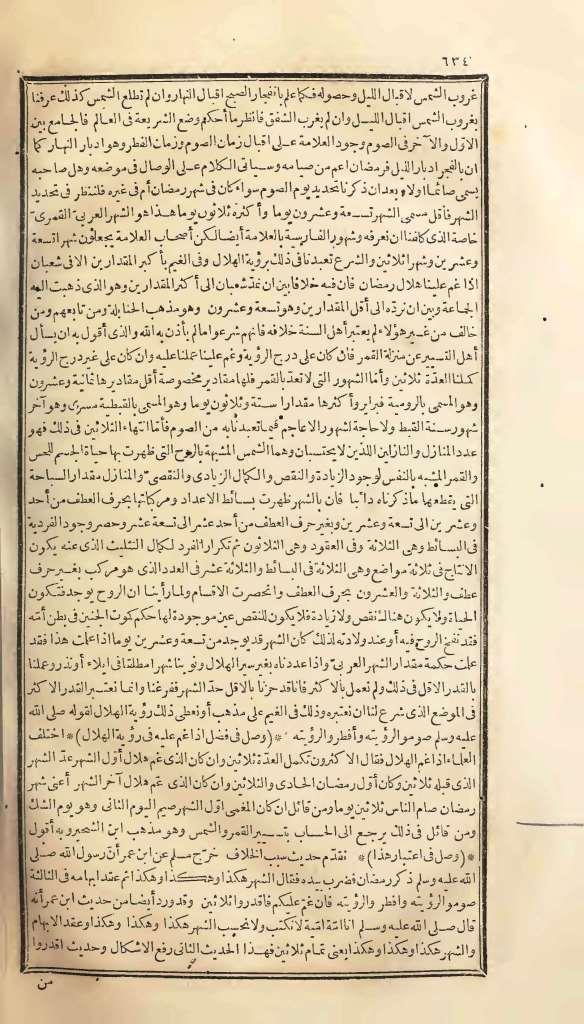 ٦٣٤
غروب الشمس لاقبال الليل وحصوله فكما علم بانفجار الصبح اقبال النهار وان لم تطلع الشمس كذلك عرفنا
بغروب الشمس اقبال الليل وان لم يغرب الشفق فانظر ما أحكم وضع الشريعة فى العالم فالجامع بين
الاول والآخر فى الصوم وجود العلامة على اقبال زمان الصوم وزمان الفطر وهو ادبار النهار كما
ان بالفجر ادبار الليل فرمضان اعم من صيامه وسيأتى الكلام على الوصال فى موضعه وهل صاحبه
يسمى صائما أولا وبعد ان ذكرنا تحديد يوم الصوم سواء كان فى شهر رمضان أم فى غيره فلننظر فى تحديد
الشهر فأقل مسمى الشهر تسعة وعشرون يوما وأكثره ثلاثون يوما هذا هو الشهر العربى القمرى
خاصة الذى كلفنا ان نعرفه وشهور الفارسية بالعلامة أيضا لكن أصحاب العلامة يجعلون شهرا تسعة
وعشرين وشهرا ثلاثين والشرع تعبدنا فى ذلك برؤية الهلال وفى الغيم بأكبر المقدارين الا فى شعبان
اذا غم علينا هلال رمضان فان فيه خلافا بين ان نمد شعبان الى أكثر المقدارين وهو الذى ذهبت اليه
الجماعة وبين ان نرده الى أقل المقدارين وهو تسعة وعشرون وهو مذهب الحنابلة ومن تابعهم ومن
خالف من غير هؤلاء لم يعتبر أهل السنة خلافه فانهم شرعوا ما لم يأذن به الله والذى أقول به ان يسأل
أهل التسيير عن منزلة القمر فان كان على درج الرؤية وغم علينا عملنا عليه وان كان على غير درج الرؤية
كملنا العدّة ثلاثين وأما الشهور التى لا تعد بالقمر فلها مقادير مخصوصة أقل مقاديرها ثمانية وعشرون
وهو المسمى بالرومية فبراير وأكثرها مقدارا ستة وثلاثون يوما وهو المسمى بالقبطية مسرى وهو آخر
شهور سنة القبط ولا حاجة لشهور الاعاجم فيما تعبدنا به من الصوم فأما انتهاء الثلاثين فى ذلك فهو
عدد المنازل والنازلين اللذين لا يحتسبان وهما الشمس المشبهة بالروح التى ظهرت بها حياة الجسم للحس
والقمر المشبه بالنفس لوجود الزيادة والنقص والكمال الزيادى والنقصى والمنازل مقدار المساحة
التى يقطعها ما ذكرناه دائبا فان بالشهر ظهرت بسائط الاعداد ومركباتها بحرف العطف من أحد
وعشرين الى تسعة وعشرين وبغير حرف العطف من أحد عشر الى تسعة عشر وحصر وجود الفردية
فى البسائط وهى الثلاثة وفى العقود وهى الثلاثون ثم تكرار الفرد لكمال التثليث الذى عنه يكون
الانتاج فى ثلاثة مواضع وهى الثلاثة فى البسائط والثلاثة عشر فى العدد الذى هو مركب بغير حرف
عطف والثلاثة والعشرون بحرف العطف وانحصرت الاقسام ولما رأينا ان الروح يوجد فتكون
الحياة ولا يكون هنالك نقص ولا زيادة فلا يكون للنقص عين موجودة لها حكم كموت الجنين فى بطن أمّه
فقد نفخ الروح فيه أو عند ولادته لذلك كان الشهر قد يوجد من تسعة وعشرين يوما اذا علمت هذا فقد
علمت حكمة مقدار الشهر العربى واذا عددناه بغير سير الهلال ونوينا شهرا مطلقا فى ايلاء أو نذر وعملنا
بالقدر الاقل فى ذلك ولم نعمل بالاكثر فاناقد حزنا بالاقل حد الشهر ففرغنا وانما نعتبر القدر الاكثر
فى الموضع الذى شرع لنا ان نعتبره وذلك فى الغيم على مذهب أو نعطى ذلك رؤية الهلال لقوله صلى الله
عليه وسلم صوموا لرؤيته وأفطروا لرؤيته * (وصل فى فصل اذا غم عليه فى رؤية الهلال) * اختلف
العلماء اذا غم الهلال فقال الاكثرون تكمل العدّة ثلاثين وان كان الذى غم هلال أول الشهر عد الشهر
الذى قبله ثلاثين وكان أول رمضان الحادى والثلاثين وان كان الذى غم هلال آخر الشهر أعنى شهر
رمضان صام الناس ثلاثين يوما ومن قائل ان كان المغمى اول الشهر صيم اليوم الثانى وهو يوم الشك
ومن قائل فى ذلك يرجع الى الحساب بتسيير القمر والشمس وهو مذهب ابن الشخير وبه أقول
* (وصل فى اعتبار هذا) * تقدّم حديث سبب الخلاف خرج مسلم عن ابن عمر أن رسول الله صلى
الله عليه وسلم ذكر رمضان فضرب بيده فقال الشهر هكذا وهكذا وهكذا ثم عقد ابهامه فى الثالثة
صوموا لرؤيته وافطروا لرؤيته فان غم عليكم فاقدروا ثلاثين وقد ورد أيضا من حديث ابن عمر أنه
قال صلى الله عليه وسلم انا امّة امّية لا نكتب ولا نحسب الشهر هكذا وهكذا وهكذا وعقد الابهام
والشهر هكذا وهكذا وهكذا يعنى تمام ثلاثين فهذا الحديث الثانى رفع الاشكال وحديث اقدروا
من